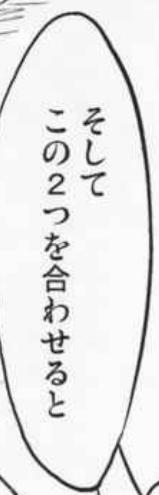 そして
この2つを合わせると